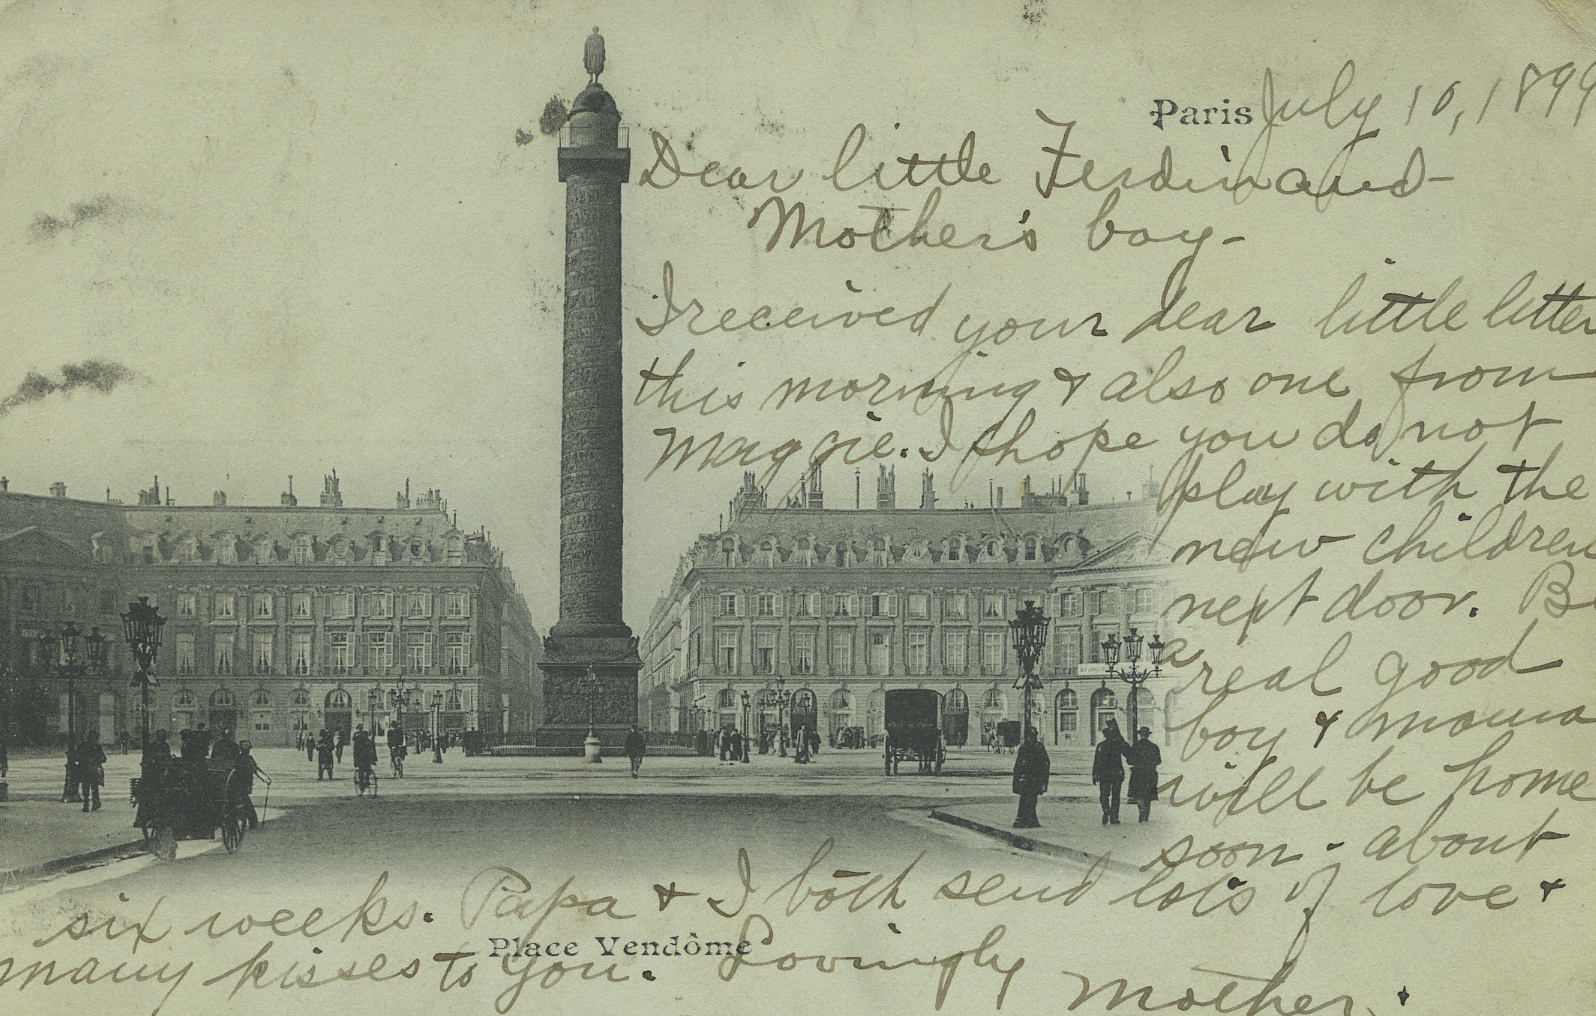 Paris July 10, 1899
Dear little Ferdinand-
Mother's boy-
I received your dear little letter
this morning & also one from
Maggie. I hope you do not
play with the
new children
next door. B
a real good
boy & mama
will be home
soon - about
six weeks. Papa & I both send lots of love &
many kisses to you. Lovingly
Mother.
Place Vendôme